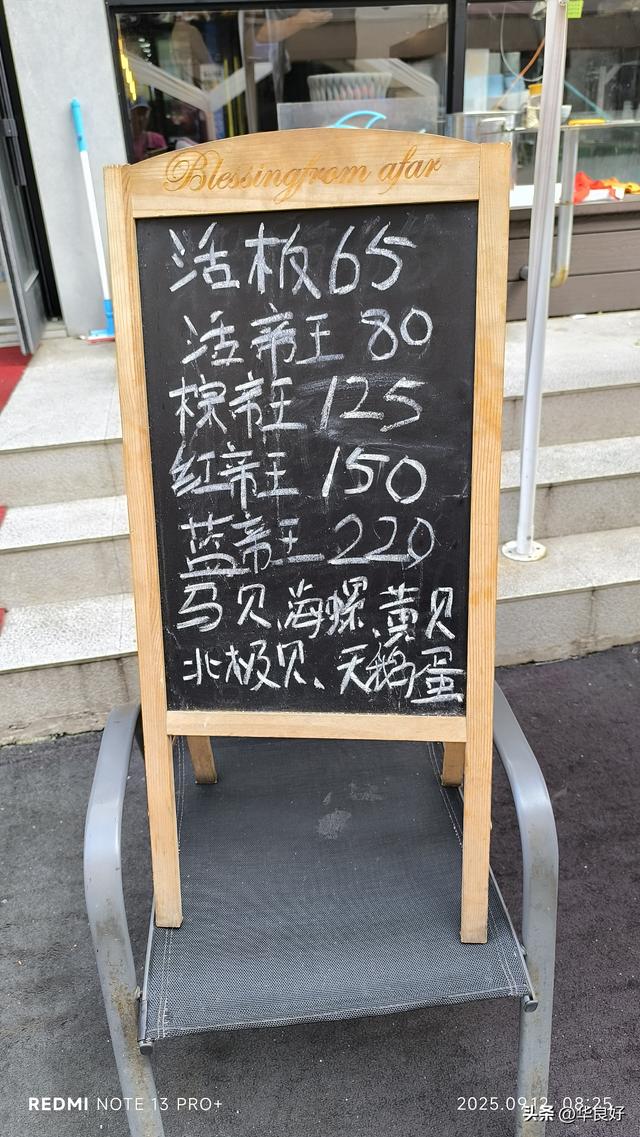 Blessingfrom afar
活板65
活帝王 80
棕帝王 125
红帝王 150
蓝帝王 220
马贝、海螺、黄贝
北极贝、天鹅蛋
REDMI NOTE 13 PRO+
2025.09.12 08:25
头条 @华良好